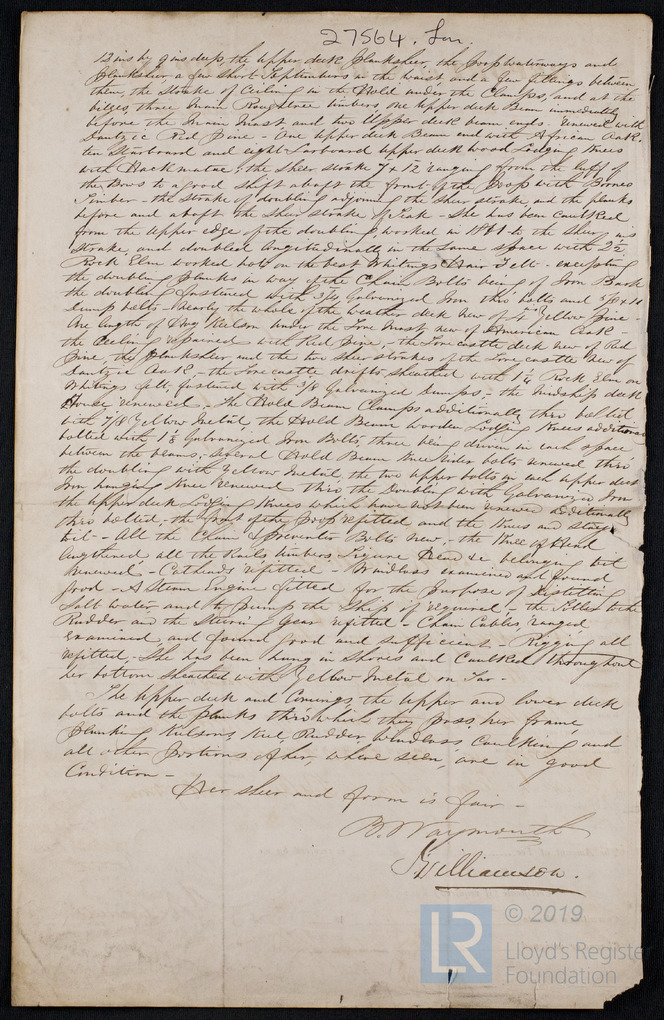 27564. Lon.
12 ins by 9 ins deep, the Upper deck Planksheer, the Poop waterways and
planksheer a few short Septimbers in the waist, and a few fillings between
them, the Strake of Ceiling in the Hold under the Clamps, and at the
bilges three main Roughtree timbers, one Upper deck Beam immediately
before the Main Mast and two Upper deck beam ends. Renewed with
Dantzic Red Pine - One upper deck Beam end with African Oak,
ten Starboard and eight Larboard Upper deck wood Lodging Knees
with Hackmatac: the Sheer strake 7 x 12 ranging from the luff of
the Bows to a good shift abaft the front of the Poop with Borneo
Timber - the strake of doubling adjoining the sheer strake, and the planks
before and abaft the sheer strake of Teak - She has been Caulked
from the Upper edge of the doubling, worked in 1861 to the sheer
strake, and doubled longitudinally in the same space with 2½
Rock Elm worked hot on the best Whitings Hair Felt - excepting
the doubling planks in way of the Chain Bolts being of Iron Bark
the doubling fastened with 3/4 Galvanized Iron thro' bolts and 5/8 x 10
dump bolts - nearly the whole of the weather deck new of Yellow Pine -
One length of Dog Keelson under the Fore Mast new of American Oak -
the Ceiling repaired with Red Pine, - the Forecastle deck new of Red
Pine, the planksheer, and the two sheerstrakes of the Forecastle new of
Dantzic Oak, - the Forecastle drifts sheathed with 1¼ Rock Elm on
Whitings felt fastened with 3/8 Galvanized dumps, - the Midship deck
House renewed, - The Hold Beam Clamps additionally thro' bolted
with 7/8 Yellow Metal, the Hold Beam wooden Lodging Knees additional
bolted with 1⅛ Galvanized Iron Bolts, three being driven in each space
between the beams; several Hold Beam Knee Rider bolts renewed thro'
the doubling with Yellow Metal, the two upper bolts in each Upper deck
Iron hanging Knee renewed thro the Doubling with Galvanized Iron
the Upper deck Lodging Knees which have not been renewed additionally
thro' bolted, - the front of the Poop refitted and the Knees and
bit - All the Chain & Preventer Bolts new, - the Knee of Head
lengthened all the Rails timbers, Figure Head &c belonging to it
renewed - Catheads refitted - Windlass examined and found
good - A Steam Engine fitted for the purpose of Distilling
Salt water, and to pump the Ship if required - the
Rudder and the Steering Gear refitted - Chain Cables, ranged
examined and found good and sufficient - Rigging all
refitted, - She has been hung in Shores and Caulked throughout
her bottom sheathed with Yellow Metal on Tar -
The Upper deck and Comings, the upper and lower deck
bolts and the planks thro' which they pass, her frame,
planking Kelsons, Keel Rudder Windlass, Caulking and
all other portions of her, where seen, are in good
Condition -
Her sheer and form is fair -
B. Waymouth
J Williamson.
LR © 2019
Lloyd's Register
Foundation